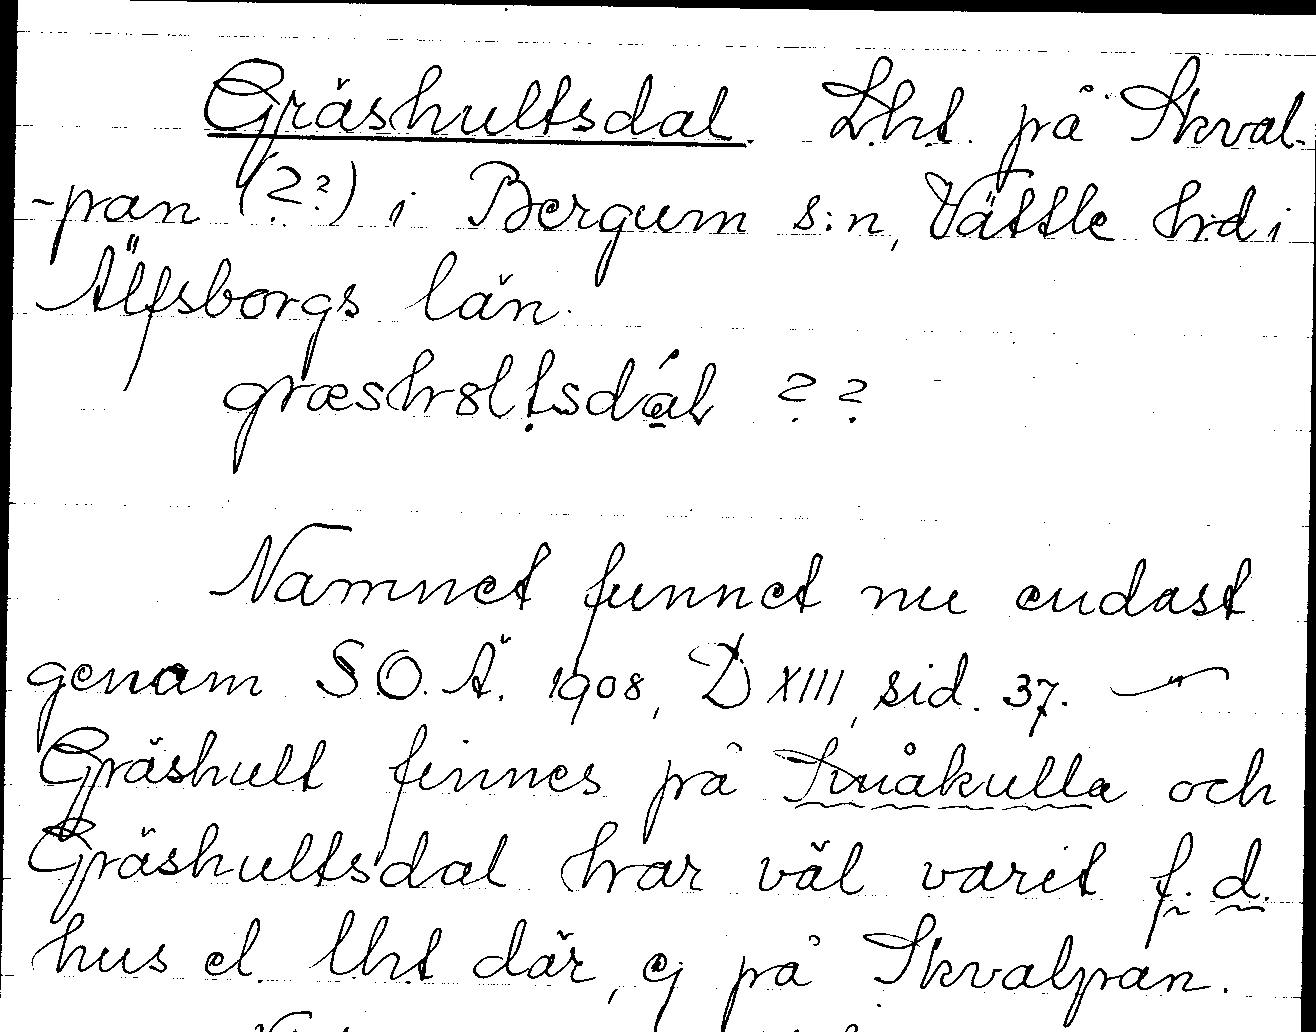 Gräshultsdal. Lht. på Skval-
-pan (??) i Bergum s:n, Vättle hrd i
Älfsborgs län.
græshȣltsdál ??
Namnet funnet nu endast
genom S.O.Ä. 1908, D XIII, sid. 37. —
Gräshult finnes på Småkulla och
Gräshultsdal har väl varit f. d.
hus el. lht där, ej på Skvalpan.